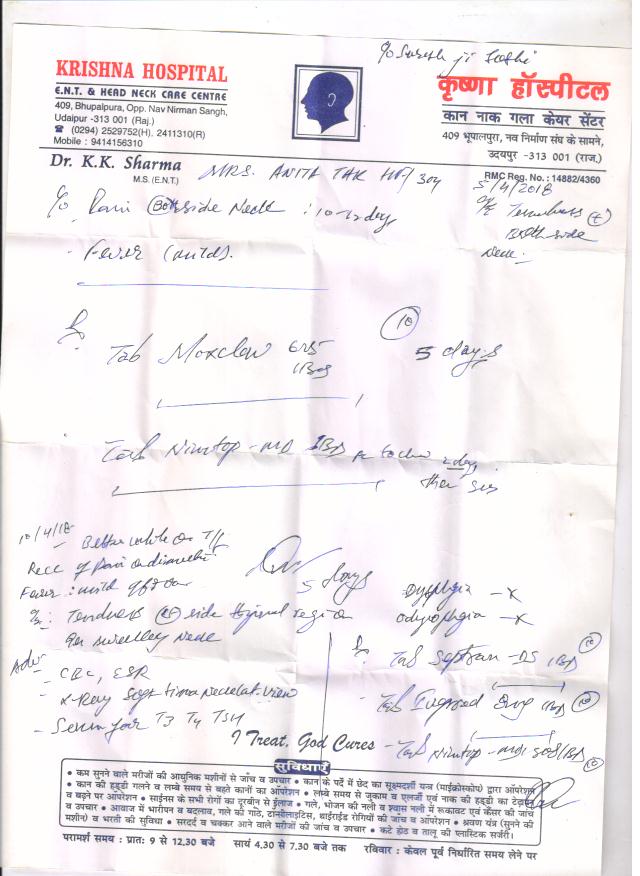 C/o Suresh ji Joshi
KRISHNA HOSPITAL
E.N.T. & HEAD NECK CARE CENTRE
409, Bhupalpura, Opp. Nav Nirman Sangh,
Udaipur -313 001 (Raj.)
☎ (0294) 2529752(H). 2411310(R)
Mobile : 9414156310
कृष्णा हॉस्पीटल
कान नाक गला केयर सेंटर
409 भूपालपुरा, नव निर्माण संघ के सामने,
उदयपुर -313 001 (राज.)
Dr. K.K. Sharma
M.S. (E.N.T.)
RMC Reg. No. : 14882/4360
MRS. ANITA TAK
5/4/2018
C/o Pain Both side Neck : 10-12 day
O/E Tenderness (+)
Both side
Neck.
- Fever (mild).
Tab Moxclav 625
1 BD
10
5 days
Tab Nimtop-MD 1BD
2 days
then SOS
10/4/18
Better while on T/t
Recc of Pain
Fever : mild
5 days
O/E : Tenderness side region
Adv
- CBC, ESR
- X-Ray Neck Lat. view
- Serum for T3 T4 TSH
Dysphagia - X
Odynophagia - X
Tab Septran-DS 1BD 10
- Tab 1BD 10
- Tab Nimtop-MD SOS/BD 10
I Treat. God Cures
सुविधाएँ
• कम सुनने वाले मरीजों की आधुनिक मशीनों से जाँच व उपचार • कान के पर्दे में छेद का सूक्ष्मदर्शी यन्त्र (माईक्रोस्कोप) द्वारा ऑपरेशन
• कान की हड्डी गलने व लंबे समय से बहते कानों का ऑपरेशन • लम्बे समय से जुकाम व एलर्जी एवं नाक की हड्डी का टेढ़ा
व बढ़ने पर ऑपरेशन • साईनस के सभी रोगों का दूरबीन से ईलाज • गले, भोजन की नली व श्वास नली में रूकावट एवं कैंसर की जाँच
व उपचार • आवाज में भारीपन व बदलाव, गले की गांठे, टान्सीलाइटिस, थाईराईड रोगियों की जांच व ऑपरेशन • श्रवण यंत्र (सुनने की
मशीन) व भरती की सुविधा • सरदर्द व चक्कर आने वाले मरीजों की जांच व उपचार • कटे होठ व तालू की प्लास्टिक सर्जरी।
परामर्श समय : प्रातः 9 से 12.30 बजे सायं 4.30 से 7.30 बजे तक रविवार : केवल पूर्व निर्धारित समय लेने पर